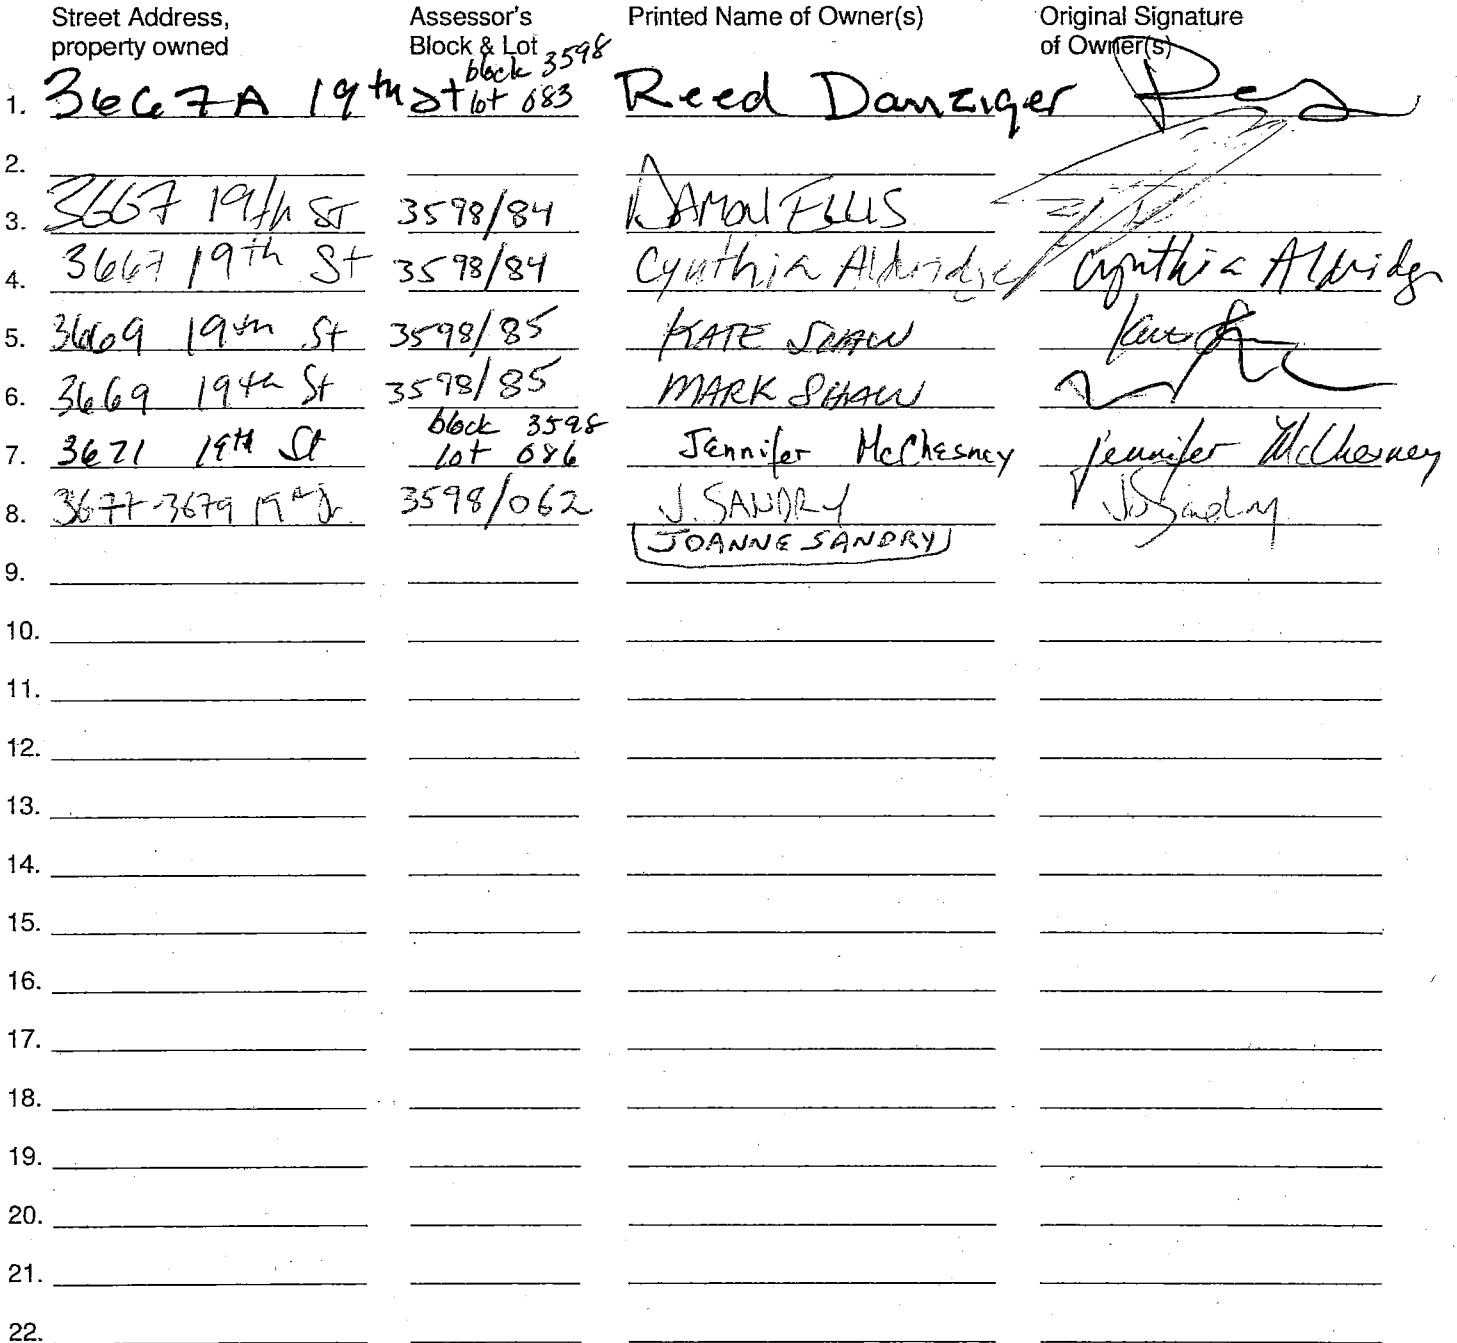 Street Address, property owned Assessor's Block & Lot Printed Name of Owner(s) Original Signature of Owner(s)
1. 3667A 19th St block 3598 lot 083 Reed Danziger
2.
3. 3667 19th St 3598/84 DAMON ELLIS
4. 3667 19th St 3598/84 Cynthia Aldridge Cynthia Aldridge
5. 3669 19th St 3598/85 KATE SHAW Kate
6. 3669 19th St 3598/85 MARK SHAW
7. 3671 19th St block 3598 lot 086 Jennifer McChesney Jennifer McChesney
8. 3677-3679 19th St 3598/062 J. SANDRY J. Sandry
JOANNE SANDRY
9.
10.
11.
12.
13.
14.
15.
16.
17.
18.
19.
20.
21.
22.